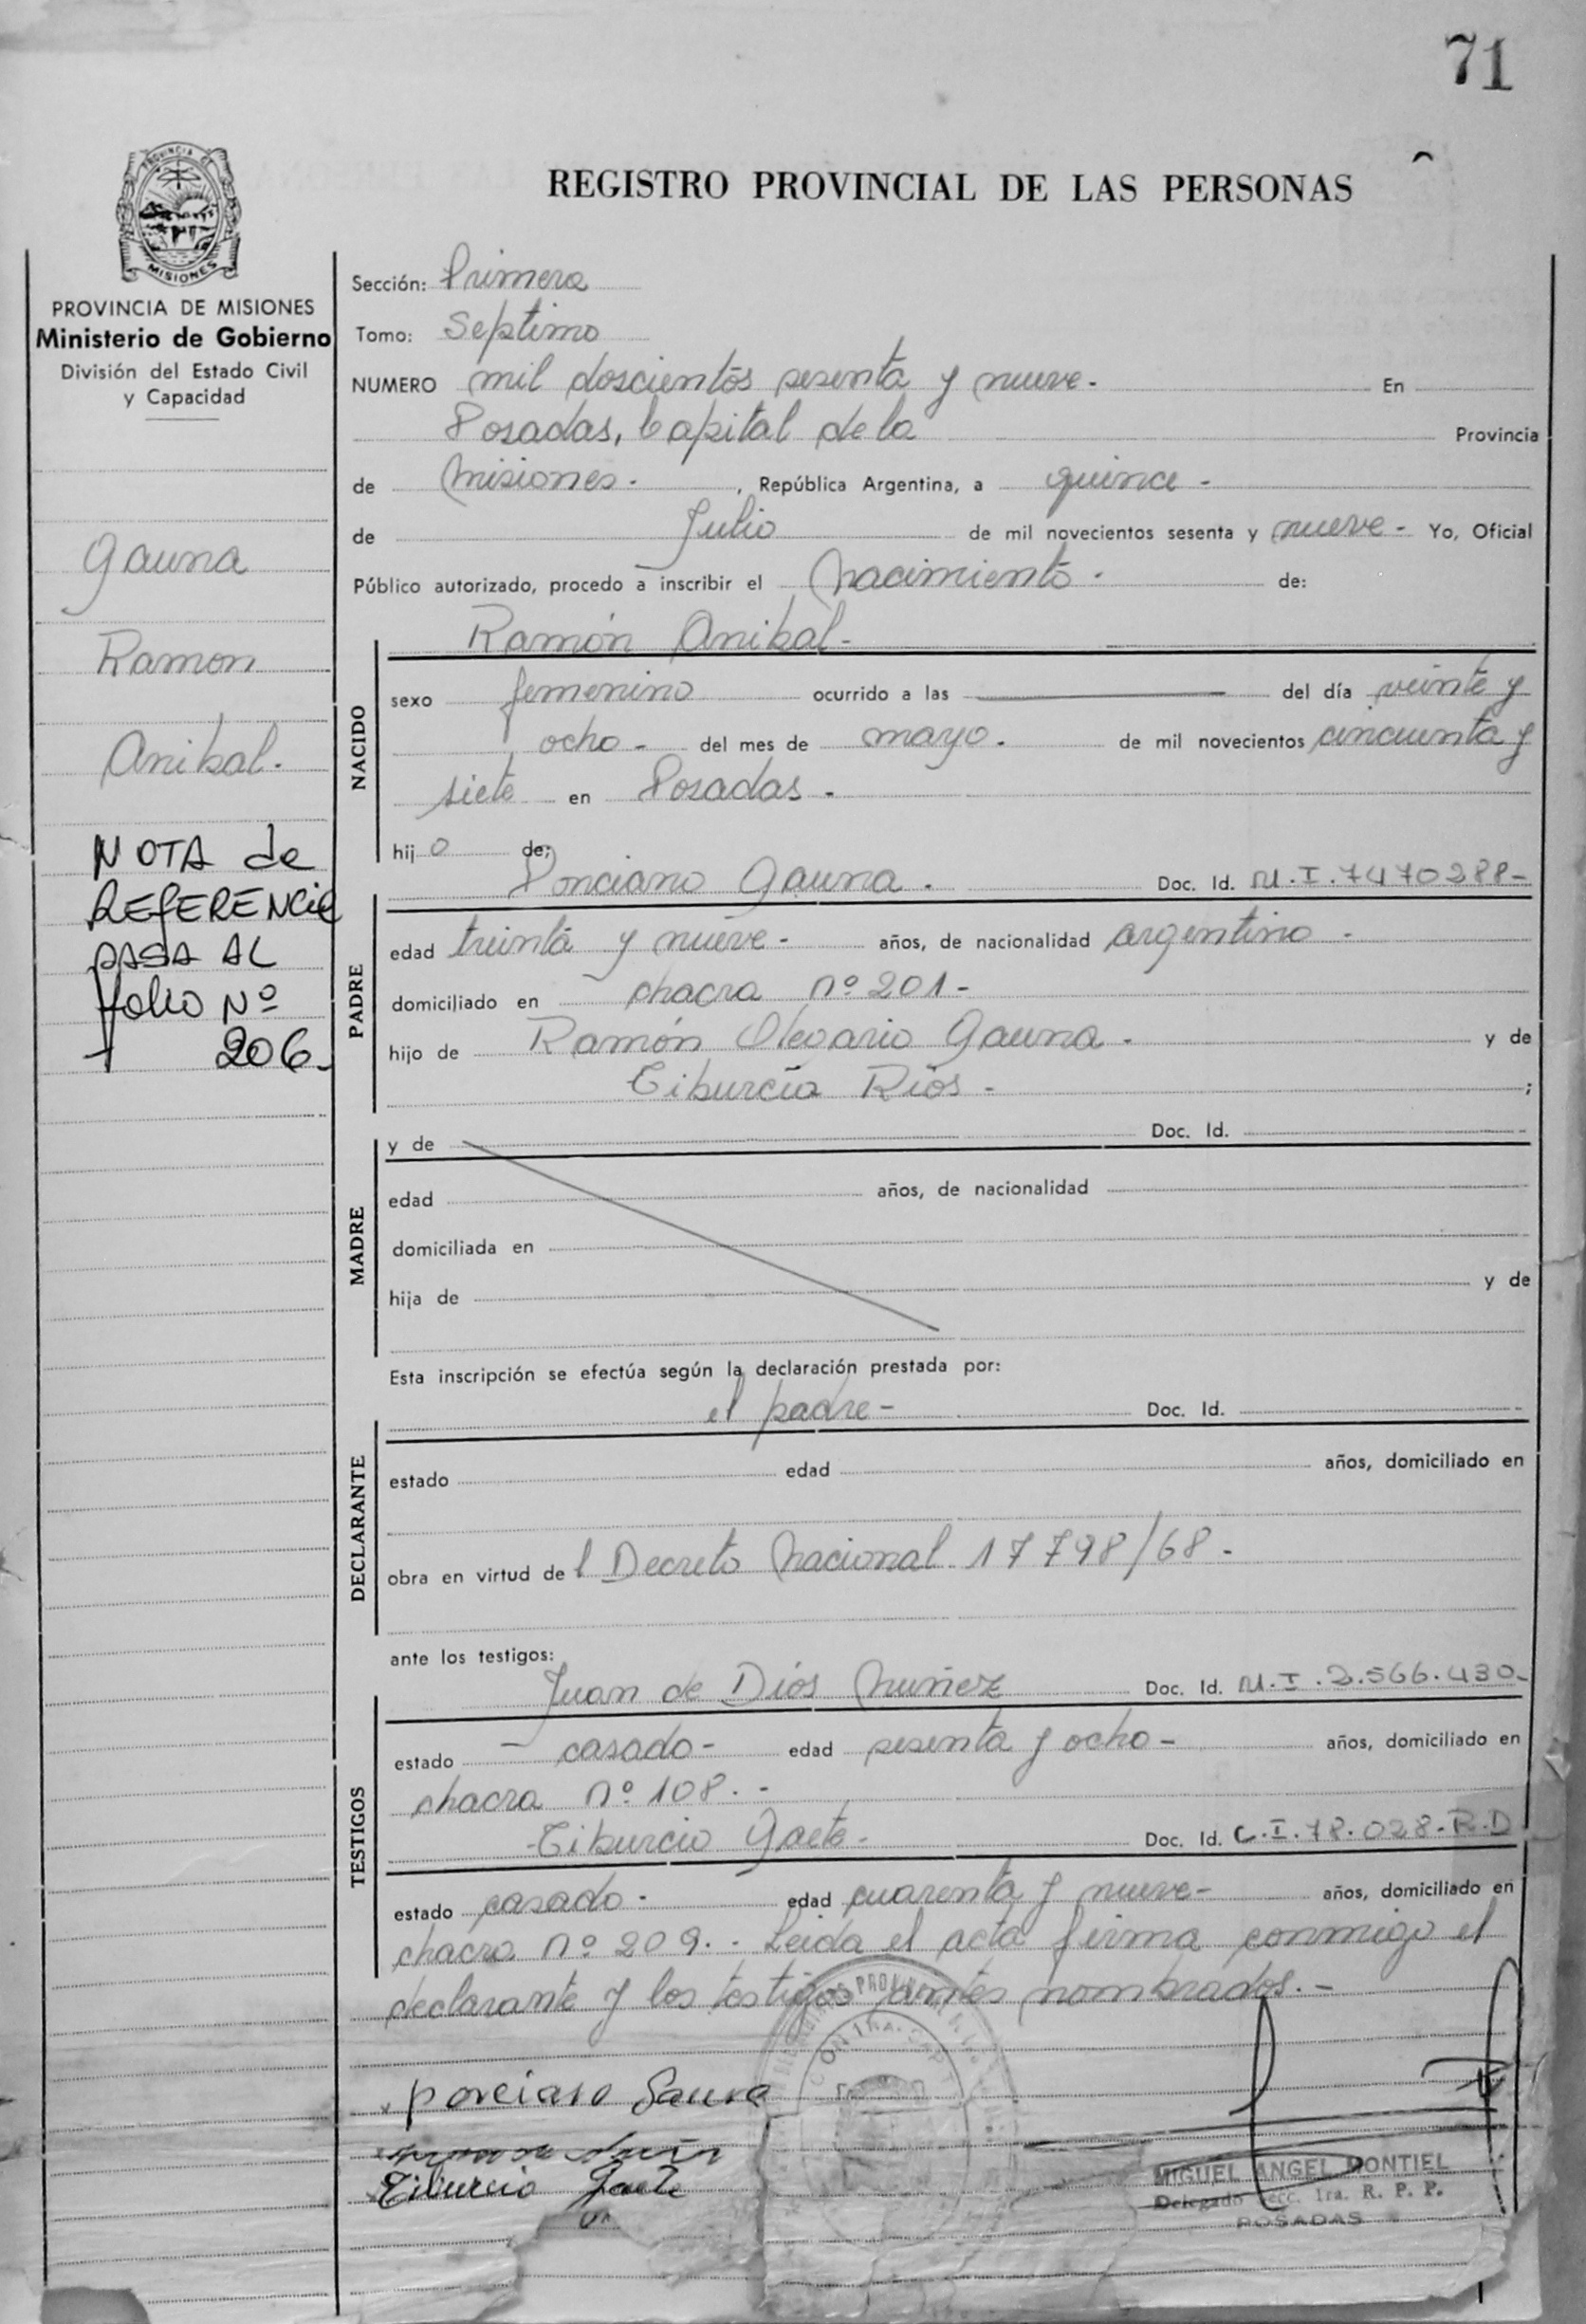 71
REGISTRO PROVINCIAL DE LAS PERSONAS
PROVINCIA DE MISIONES
PROVINCIA DE MISIONES
Ministerio de Gobierno
División del Estado Civil
y Capacidad
Gauna
Ramon
Anibal.
NOTA de
REFERENCIA
PASA AL
folio Nº
206-
Sección: Primera
Tomo: Septimo
NUMERO mil doscientos sesenta y nueve- En
Posadas, Capital de la Provincia
de Misiones-, República Argentina, a quince-
de Julio de mil novecientos sesenta y nueve- Yo, Oficial
Público autorizado, procedo a inscribir el Nacimiento- de:
NACIDO
Ramón Anibal-
sexo femenino ocurrido a las —— del día veinte y
ocho- del mes de mayo. de mil novecientos cincuenta y
siete en Posadas-
hijo de:
PADRE
Ponciano Gauna. Doc. Id. M.I.7470288-
edad treinta y nueve- años, de nacionalidad argentino-
domiciliado en chacra nº 201-
hijo de Ramón Olevario Gauna- y de
Tiburcia Rios- ;
MADRE
y de Doc. Id.
edad años, de nacionalidad
domiciliada en
hija de y de
Esta inscripción se efectúa según la declaración prestada por:
DECLARANTE
el padre- Doc. Id.
estado edad años, domiciliado en
obra en virtud del Decreto Nacional 17798/68-
ante los testigos:
TESTIGOS
Juan de Dios Nuñez Doc. Id. M.I.2.566.430-
estado casado- edad sesenta y ocho- años, domiciliado en
chacra nº 108.-
-Tiburcio Gaete- Doc. Id. C.I.78.028-R.D
estado casado- edad cuarenta y nueve- años, domiciliado en
chacra nº 209.- Leida el acta firma conmigo el
declarante y los testigos antes nombrados.-
ponciano Gauna
Tiburcio Gaete
MIGUEL ANGEL MONTIEL
Delegado Secc. 1ra. R. P. P.
POSADAS